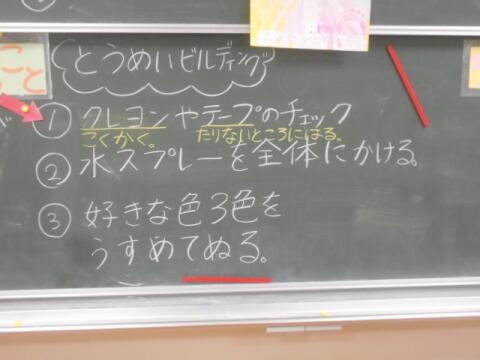 こと
とうめいビルディング
① クレヨンやテープのチェック
こくかく。 たりないところにはる。
② 水スプレーを全体にかける。
③ 好きな色3色を
うすめてぬる。